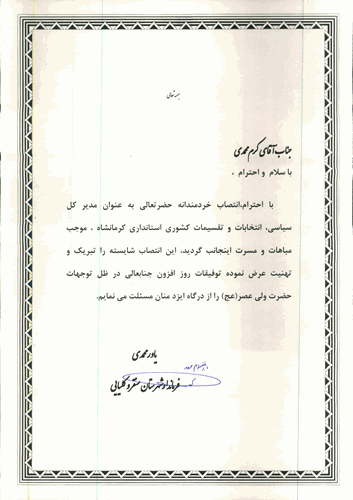 بسمه تعالی
جناب آقای کرم محمدی
با سلام و احترام ،
با احترام،انتصاب خردمندانه حضرتعالی به عنوان مدیر کل
سیاسی، انتخابات و تقسیمات کشوری استانداری کرمانشاه ، موجب
مباهات و مسرت اینجانب گردید، این انتصاب شایسته را تبریک و
تهنیت عرض نموده توفیقات روز افزون جنابعالی در ظل توجهات
حضرت ولی عصر(عج) را از درگاه ایزد منان مسئلت می نمایم.
یاور محمدی
فرماندار شهرستان سنقر و کلیایی